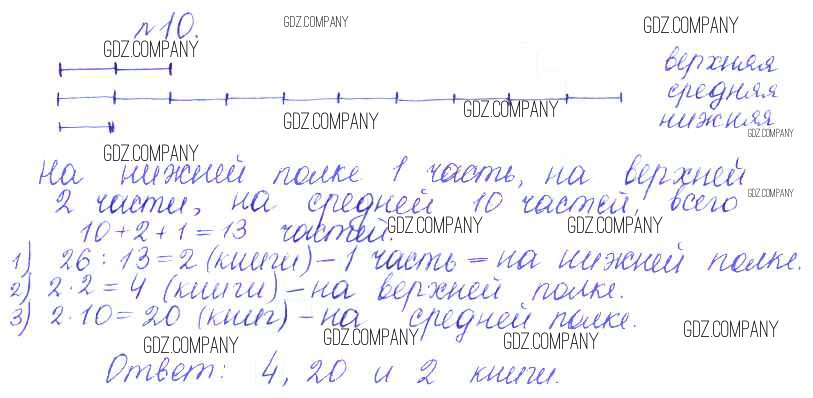 №10.
GDZ.COMPANY
GDZ.COMPANY
GDZ.COMPANY
верхняя
средняя
GDZ.COMPANY
GDZ.COMPANY
нижняя
GDZ.COMPANY
GDZ.COMPANY
На нижней полке 1 часть, на верхней
2 части, на средней 10 частей, всего
GDZ.COMPANY
10+2+1=13 частей.
GDZ.COMPANY
GDZ.COMPANY
1) 26:13=2 (книги)–1 часть – на нижней полке.
2) 2·2=4 (книги)–на верхней полке.
3) 2·10=20 (книг)–на средней полке.
GDZ.COMPANY
GDZ.COMPANY
GDZ.COMPANY
GDZ.COMPANY
Ответ: 4, 20 и 2 книги.